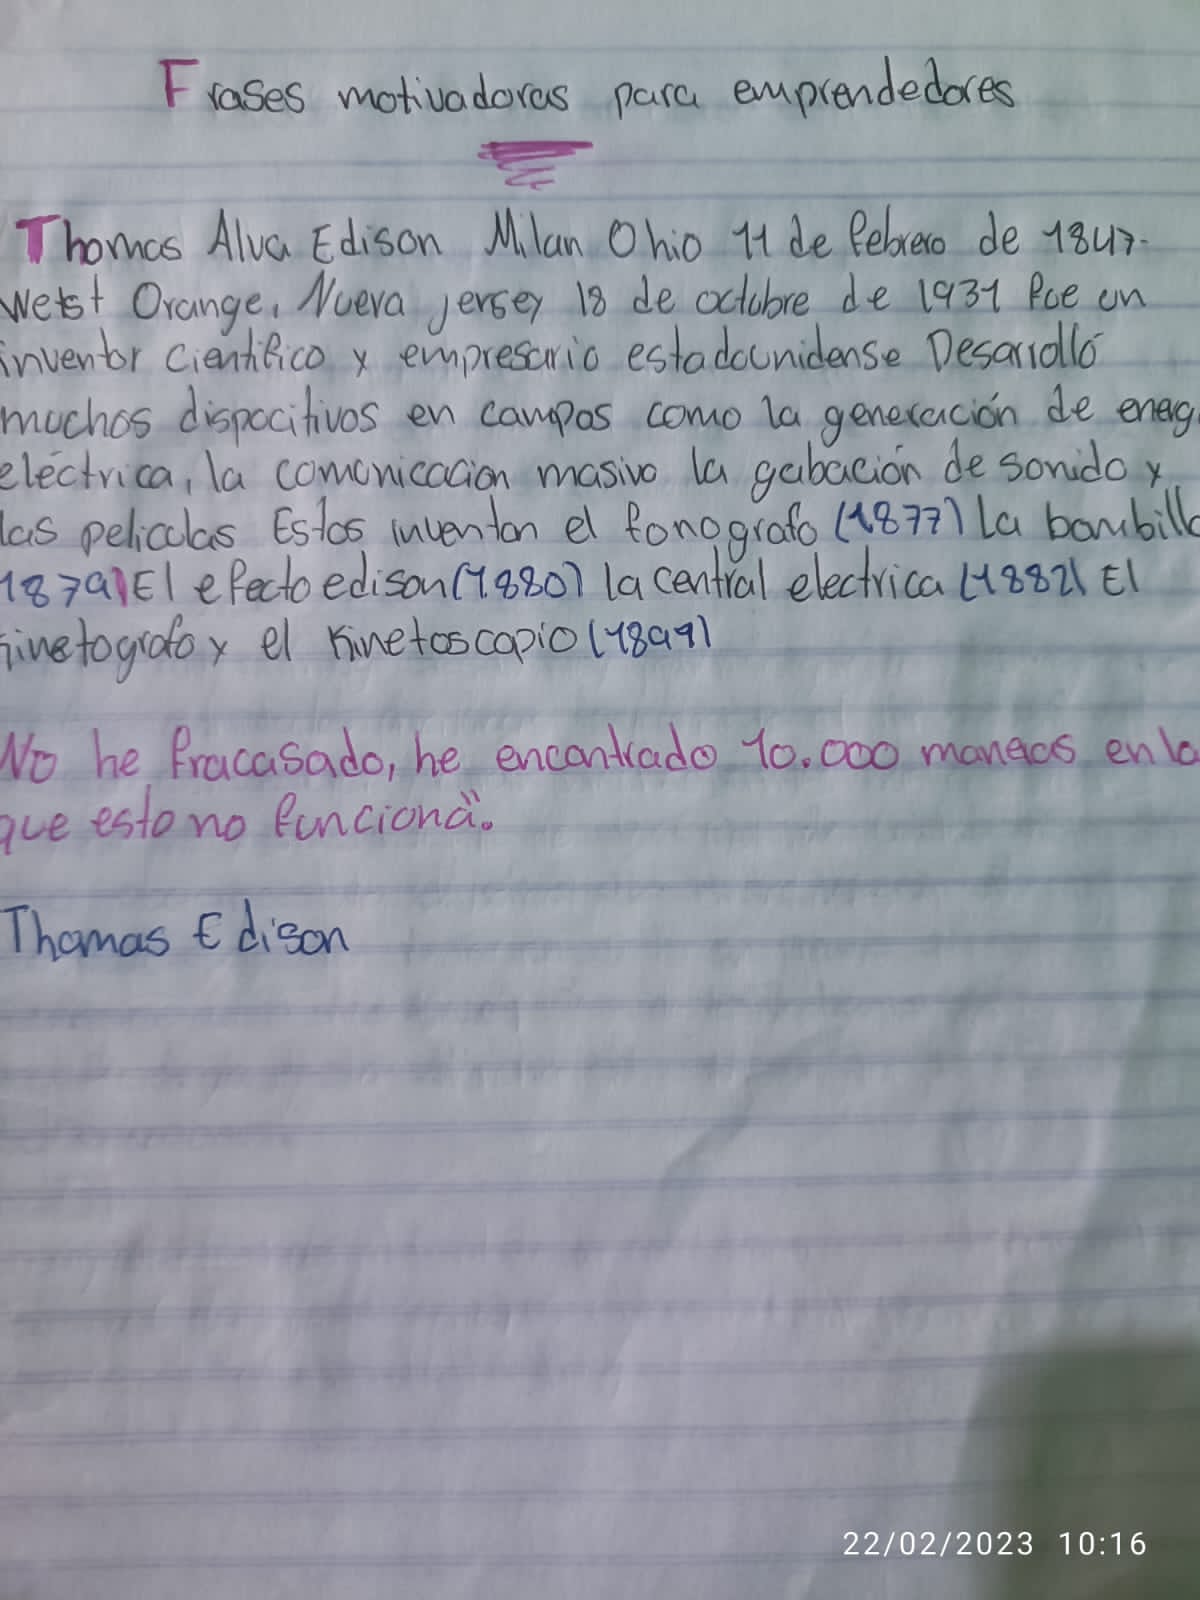 Frases motivadoras para emprendedores
Thomas Alva Edison Milan Ohio 11 de febrero de 1847-
West Orange, Nueva jersey 18 de octubre de 1931 fue un
inventor científico y empresario estadounidense Desarrolló
muchos dispocitivos en campos como la generación de energ
eléctrica, la comunicacion masivo la gabación de sonido y
las peliculas Estos inventon el fonografo (1877) La bombilla
1879) El efecto edison (1880) la central electrica (1882) El
kinetografo y el Kinetoscopio (1899)
No he fracasado, he encontrado 10.000 maneas en la
que esto no funciona".
Thomas Edison
22/02/2023 10:16